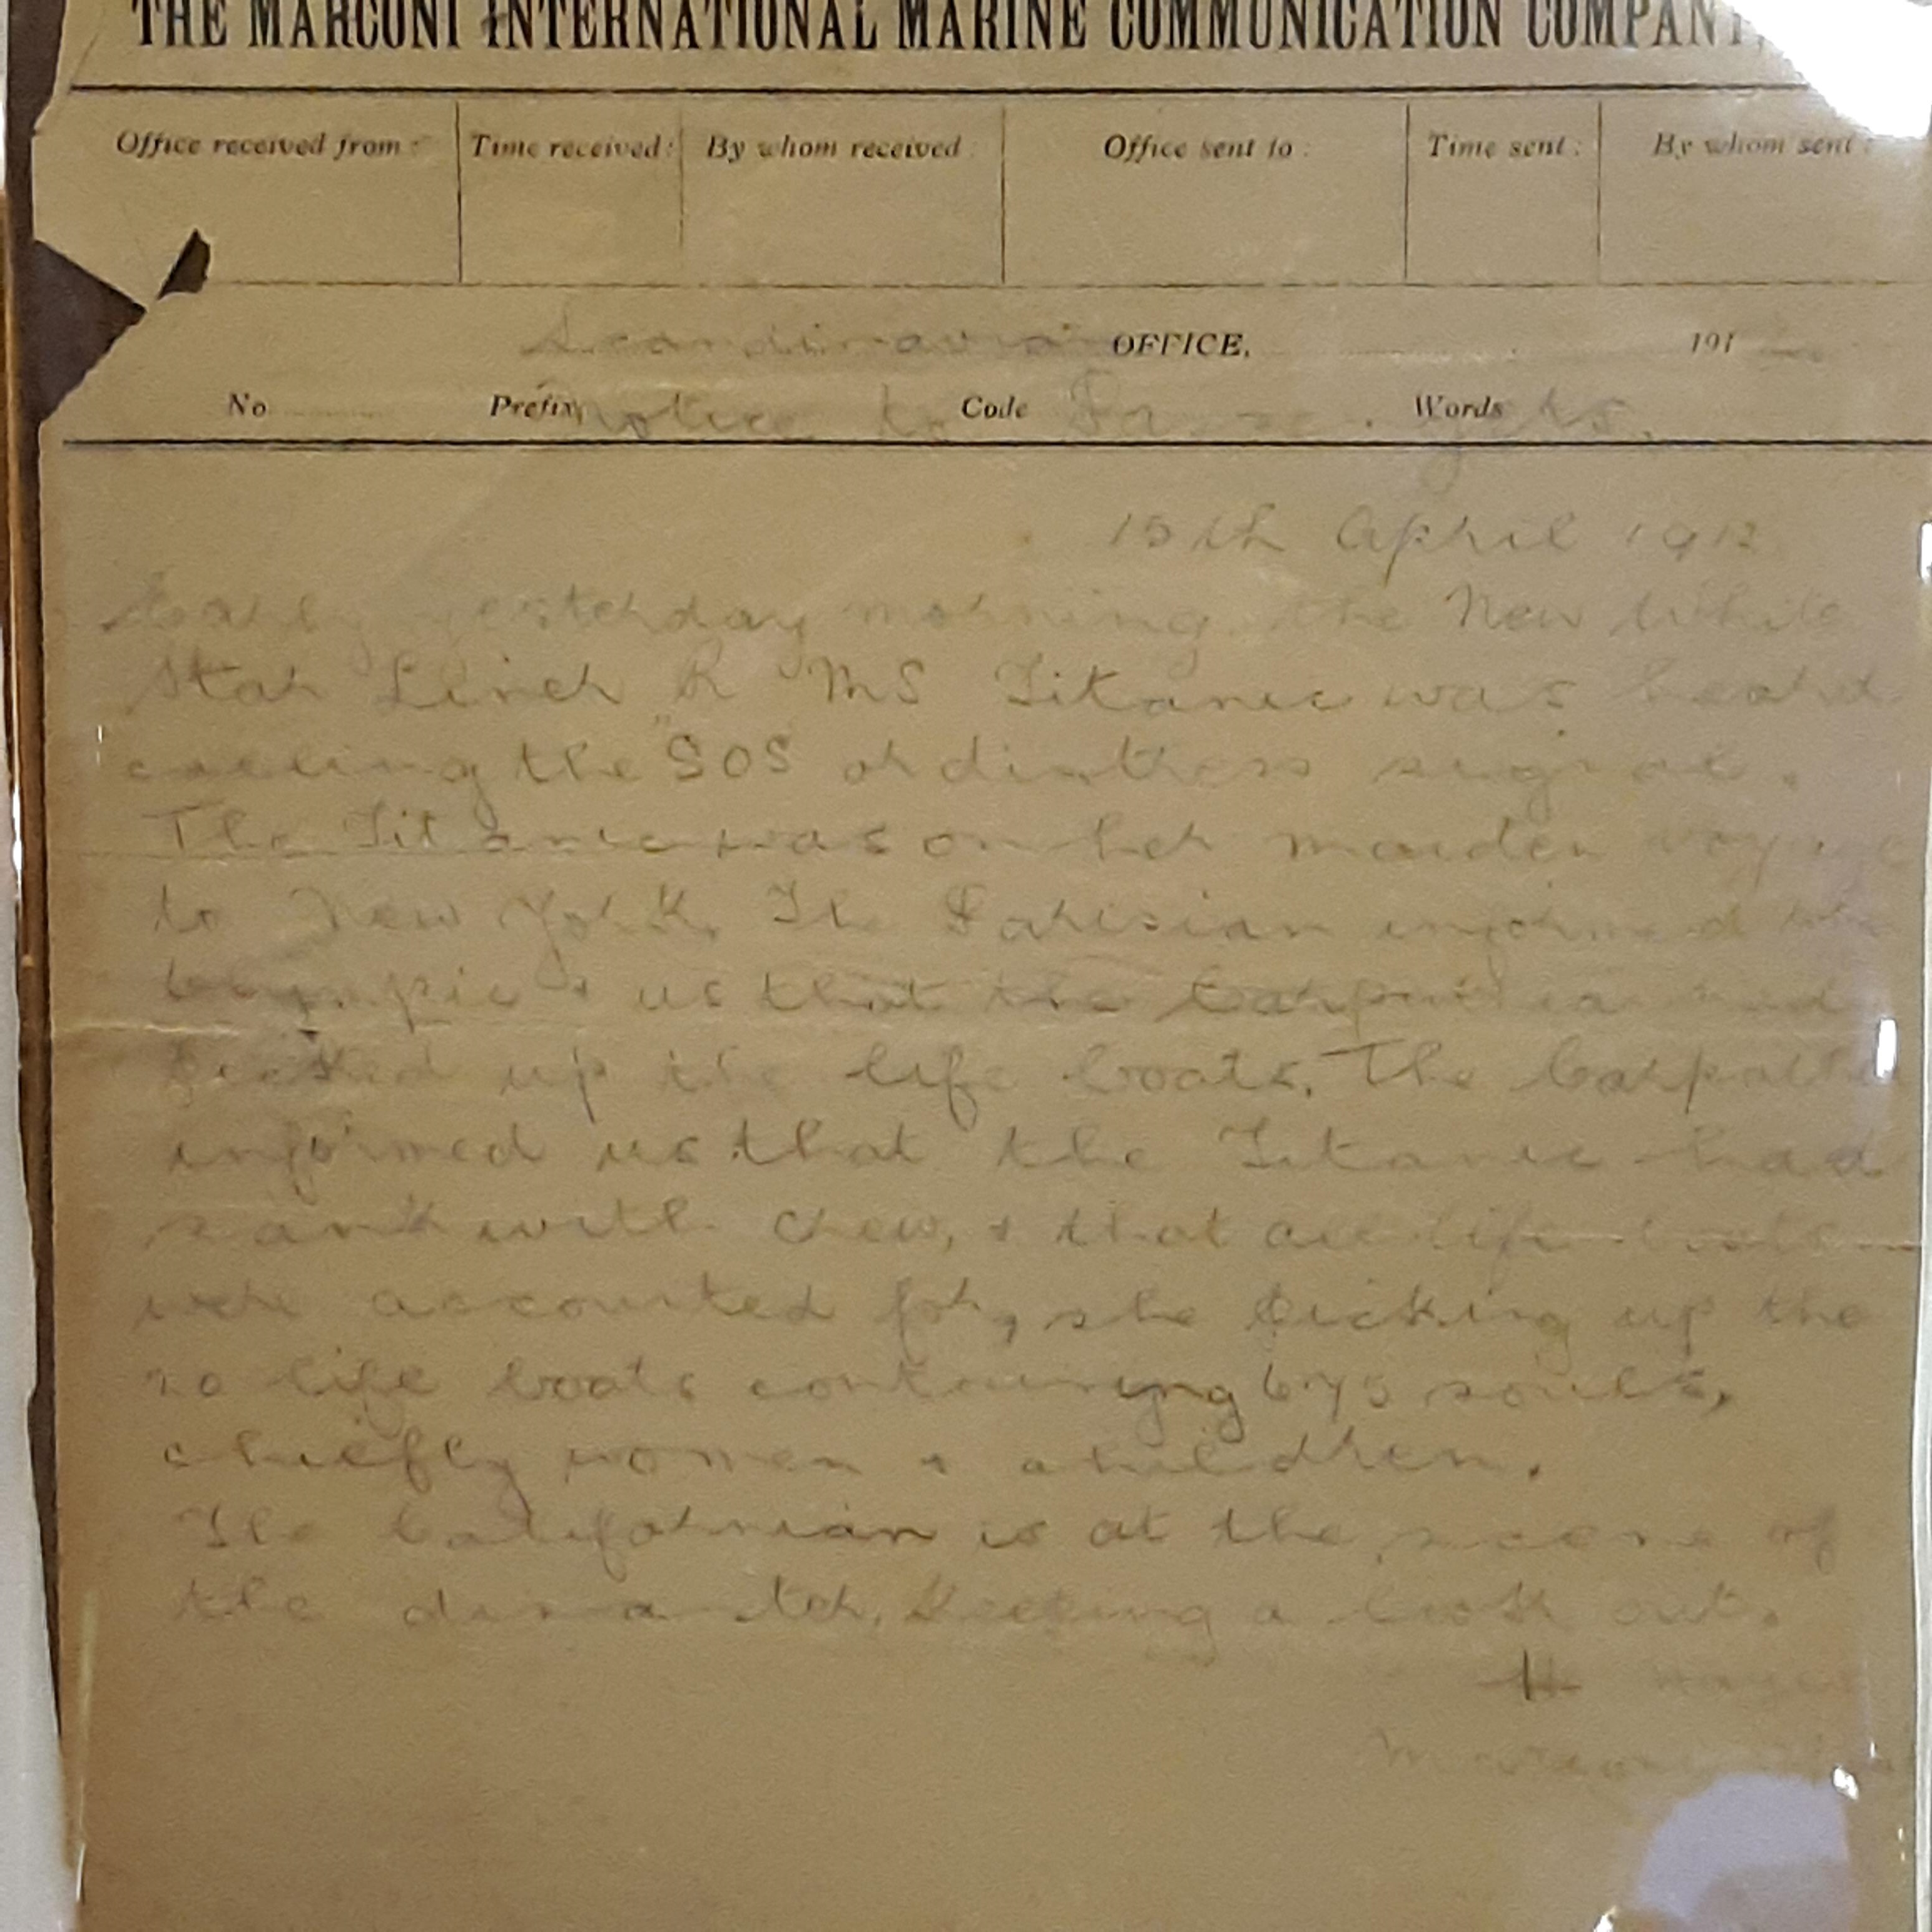 THE MARCONI INTERNATIONAL MARINE COMMUNICATION COMPANY,
Office received from: Time received: By whom received Office sent to: Time sent: By whom sent:
Scandinavian OFFICE, 191
No Prefix Code Words
Notice to
15th April 1912
Early yesterday morning the New White
Star Liner R MS Titanic was heard
calling the "SOS" or distress signal.
The Titanic was on her maiden voyage
to New York. The Parisian informed the
Olympic + us that the Carpathia had
picked up the life boats. The Carpathia
informed us that the Titanic had
sank with crew, + that all life boats
were accounted for, she picking up the
20 life boats containing 675 souls,
chiefly women + children.
The Californian is at the scene of
the disaster, keeping a look out.
H